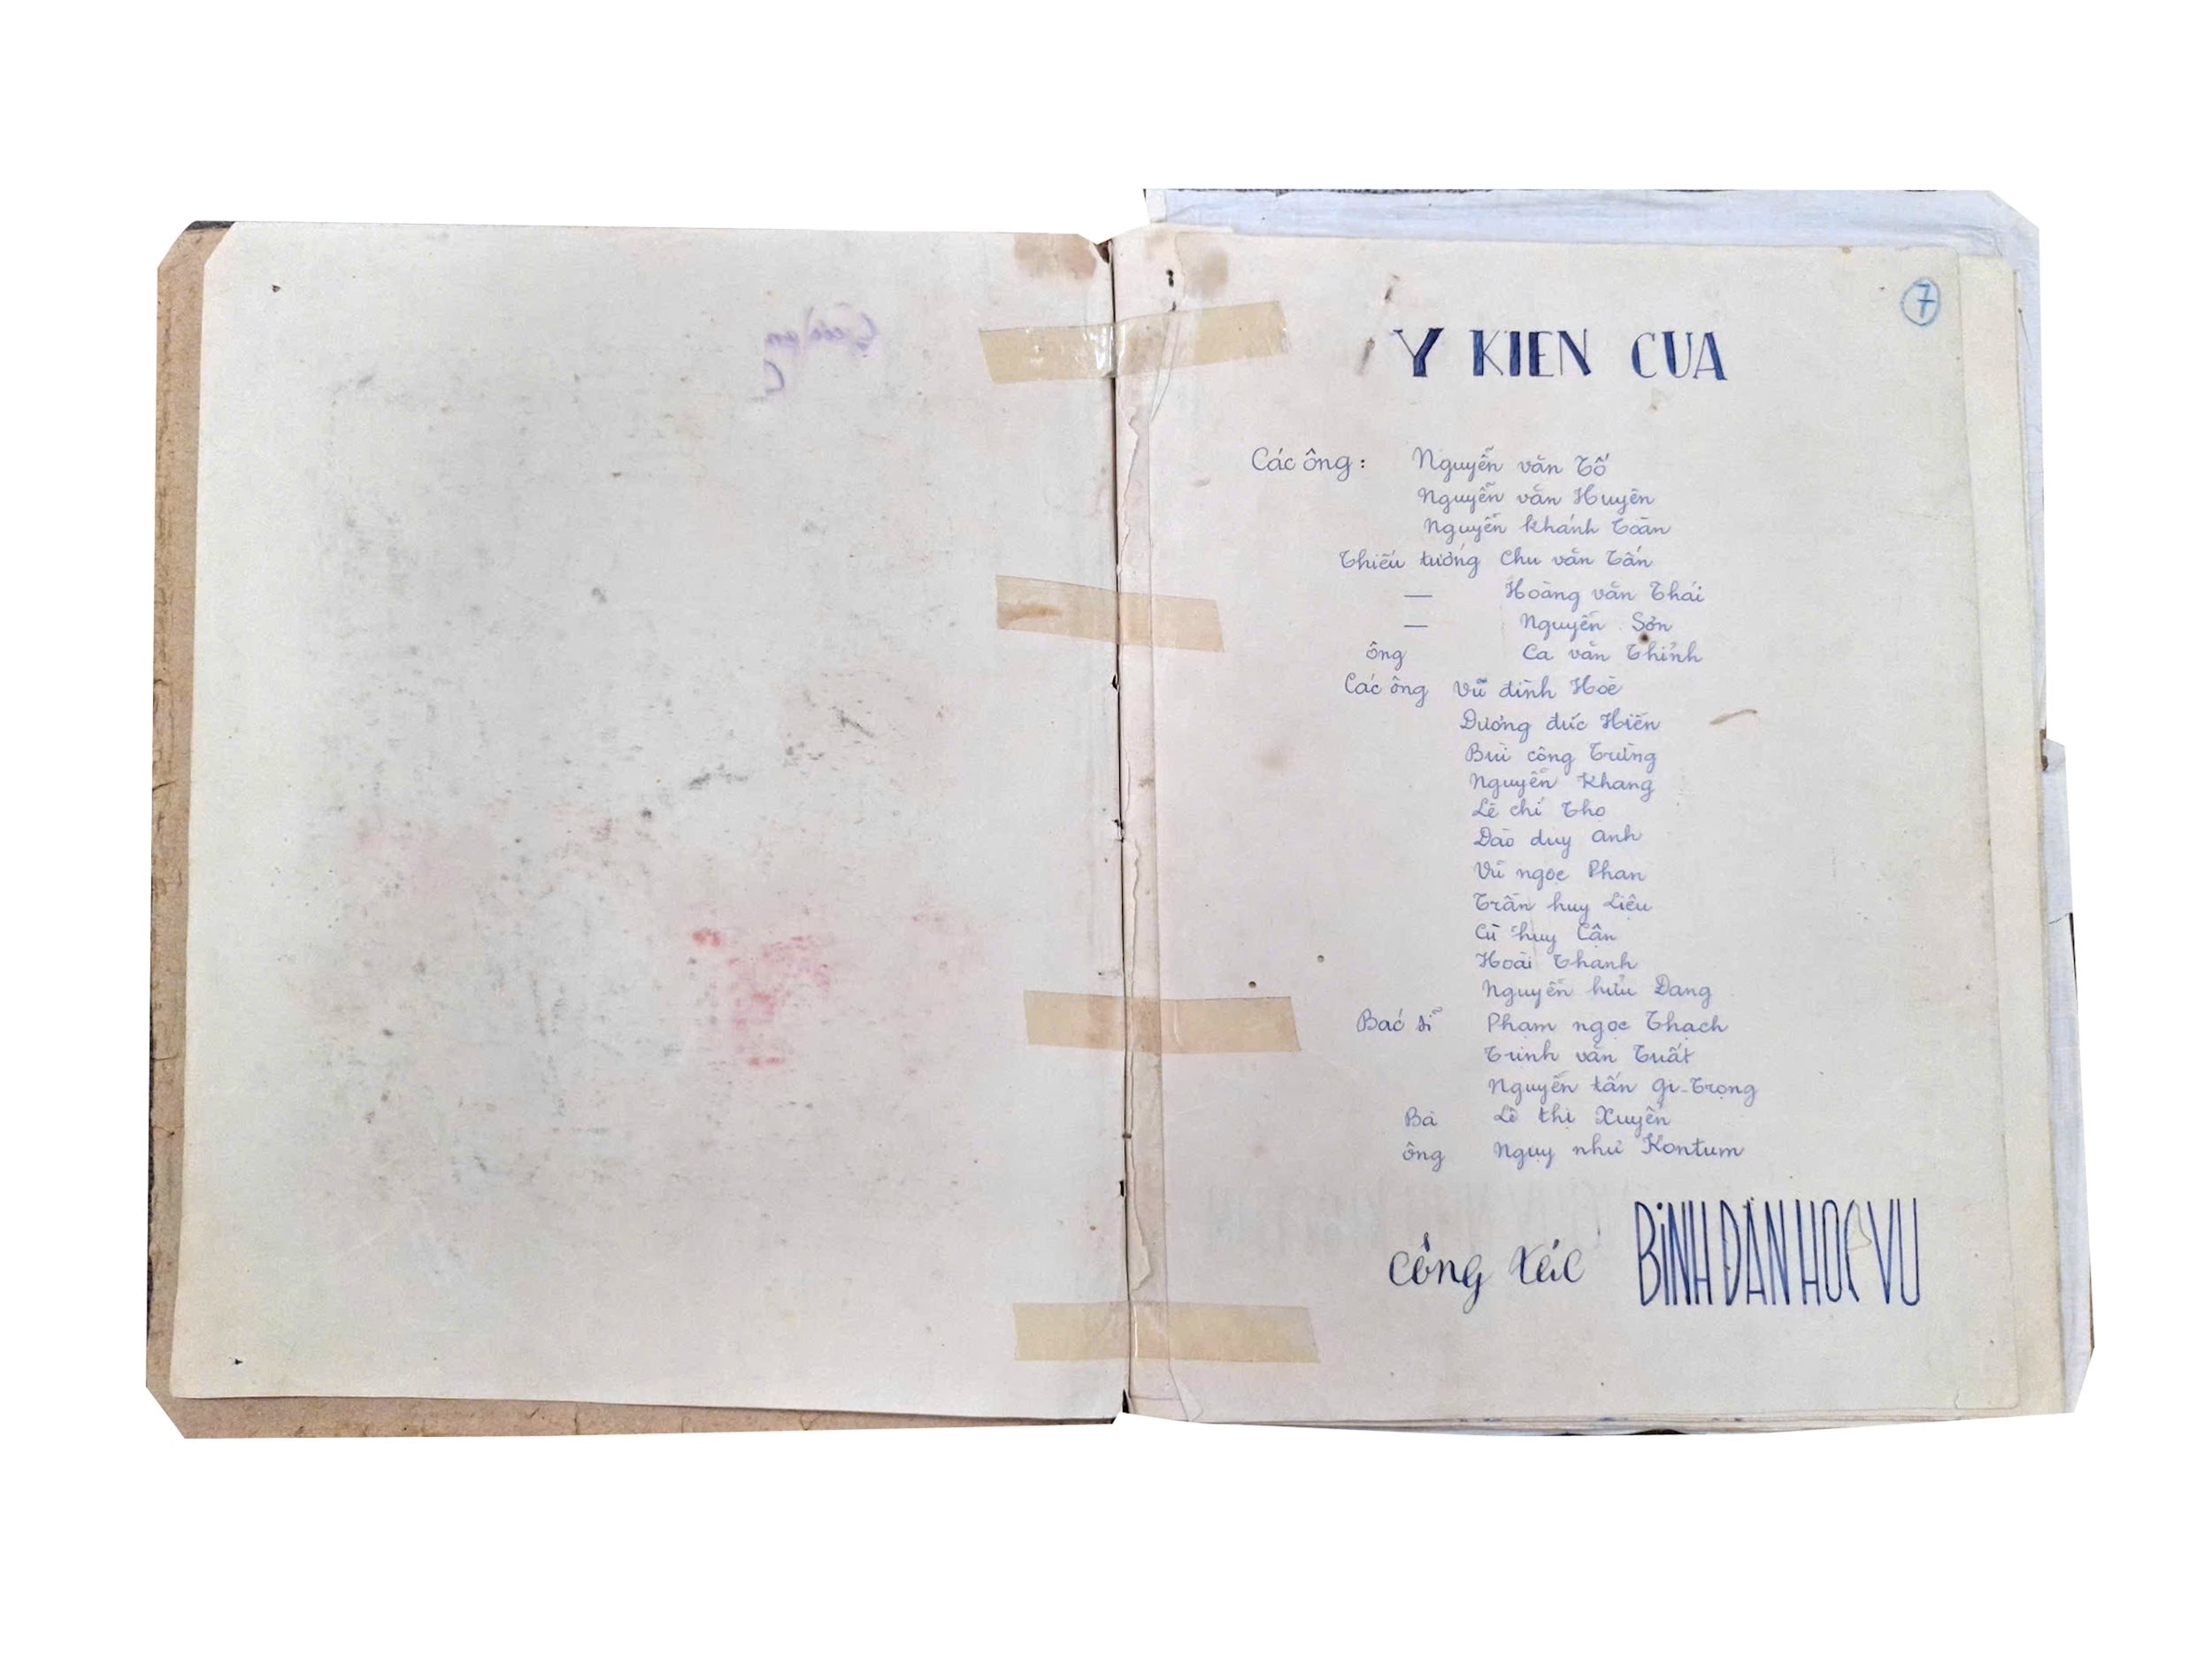 7
Y KIEN CUA
Các ông: Nguyễn văn Tố
Nguyễn văn Huyên
Nguyễn khánh Toàn
Thiếu tướng Chu văn Tấn
— Hoàng văn Thái
— Nguyễn Sơn
ông Ca văn Thỉnh
Các ông Vũ đình Hòe
Dương đức Hiền
Bùi công Trừng
Nguyễn Khang
Lê chí Thọ
Đào duy Anh
Vũ ngọc Phan
Trần huy Liệu
Cù huy Cận
Hoài Thanh
Nguyễn hữu Đang
Bác sĩ Phạm ngọc Thạch
Trinh văn Tuất
Nguyễn tấn Gi-Trọng
Bà Lê thị Xuyến
ông Ngụy như Kontum
công tác BÌNH DAN HOC VU